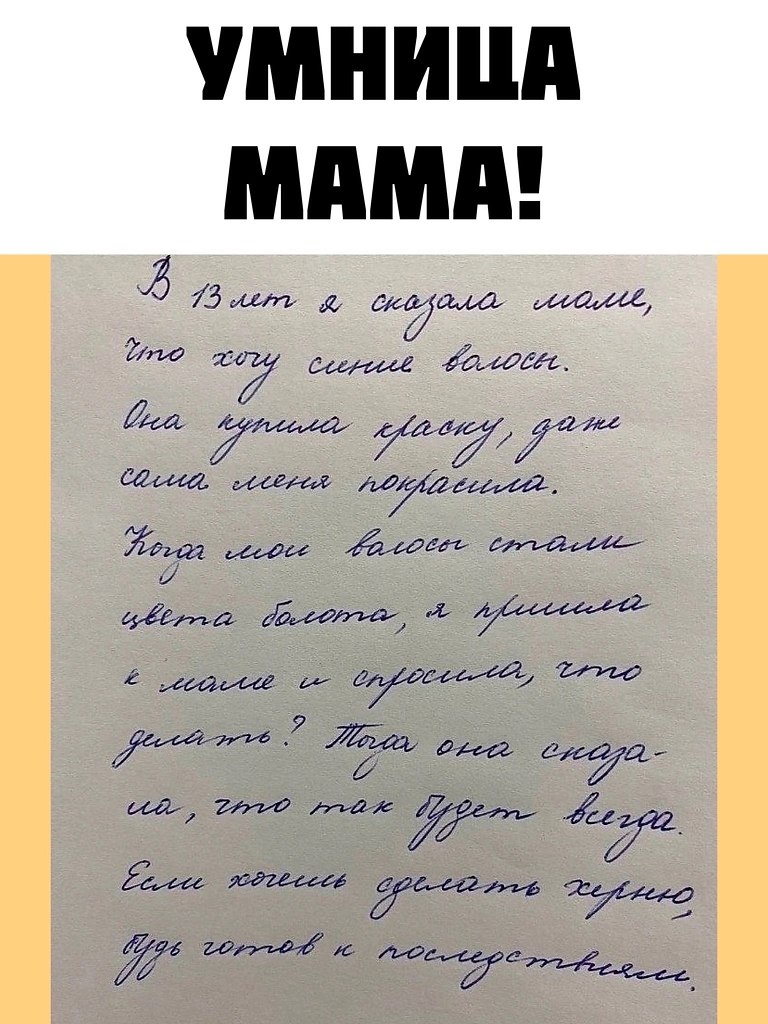 УМНИЦА
МАМА!
В 13 лет я сказала маме,
что хочу синие волосы.
Она купила краску, даже
сама меня покрасила.
Когда мои волосы стали
цвета болота, я пришла
к маме и спросила, что
делать? Тогда она сказа-
ла, что так будет всегда.
Если хочешь сделать херню,
будь готов к последствиям.